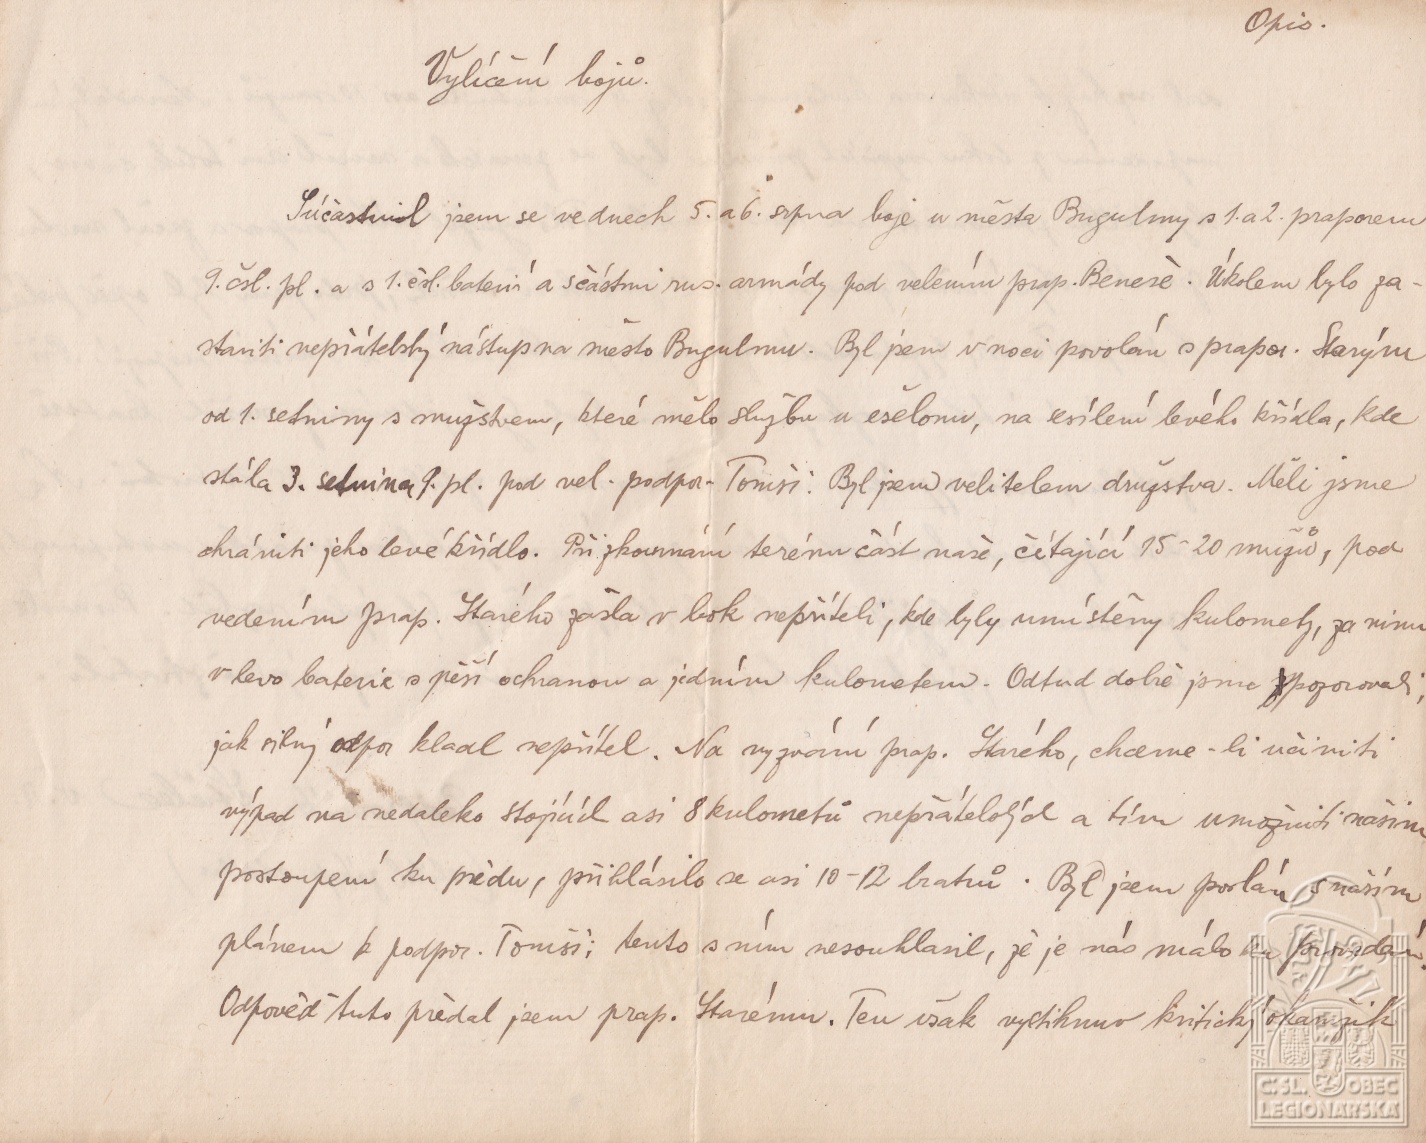 Opis.
Vylíčení bojů.
Súčastnil jsem se ve dnech 5. a 6. srpna boje u města Bugulmy s 1. a 2. praporem
9. čsl. pl. a s 1. čsl. baterií a sčástmi rus. armády pod velením prap. Beneše. Úkolem bylo za-
staviti nepřátelský nástup na město Bugulmu. Byl jsem v noci povolán s prapor. Starým
od 1. setniny s mužstvem, které mělo službu u ešelonu, na sesílení levého křídla, kde
stála 3. setnina 9. pl. pod vel. podpor. Tomši. Byl jsem velitelem družstva. Měli jsme
chrániti jeho levé křídlo. Při zkoumání terénu část naše, čítající 15-20 mužů, pod
vedením prap. Starého zašla v bok nepříteli, kde byly umístěny kulomety, za nimi
v levo baterie s pěší ochranou a jedním kulometem. Odtud dobře jsme pozorovali,
jak silný odpor kladl nepřítel. Na vyzvání prap. Starého, chceme-li učiniti
výpad na nedaleko stojících asi 8 kulometů nepřátelských a tím umožniti našim
postoupení ku předu, přihlásilo se asi 10-12 bratrů. Byl jsem poslán s naším
plánem k podpor. Tomši; tento s ním nesouhlasil, že je nás málo
Odpověď tuto předal jsem prap. Starému. Ten však vystihnuv kritický okamžik
Č.SL. OBEC
LEGIONÁŘSKÁ